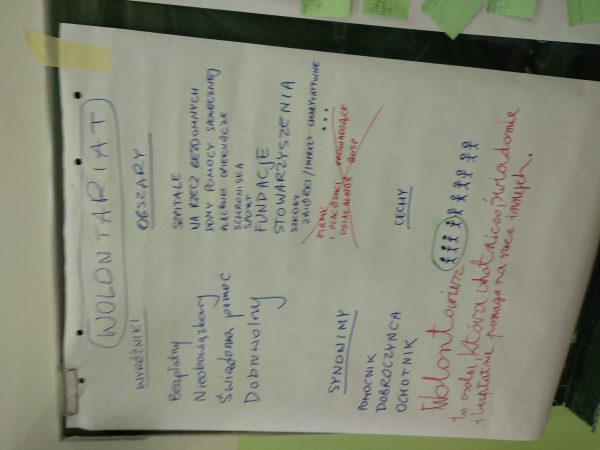 WOLONTARIAT
WYRÓŻNIKI
Bezpłatny
Nieobowiązkowy
Świadoma pomoc
Dobrowolny
OBSZARY
SZPITALE
NA RZECZ BEZDOMNYCH
DOMY POMOCY SPOŁECZNEJ
PLACÓWKI OPIEKUŃCZE
SCHRONISKA
SPORT
FUNDACJE
STOWARZYSZENIA
SZKOŁY
ZBIÓRKI/IMPREZY CHARYTATYWNE
...
FIRMY
I PLACÓWKI PROWADZĄCE
DZIAŁALNOŚĆ GOSP
SYNONIMY
POMOCNIK
DOBROCZYŃCA
OCHOTNIK
CECHY
Wolontariusz
to osoba, która chętnie i świadomie
i bezpłatnie pomaga na rzecz innych.